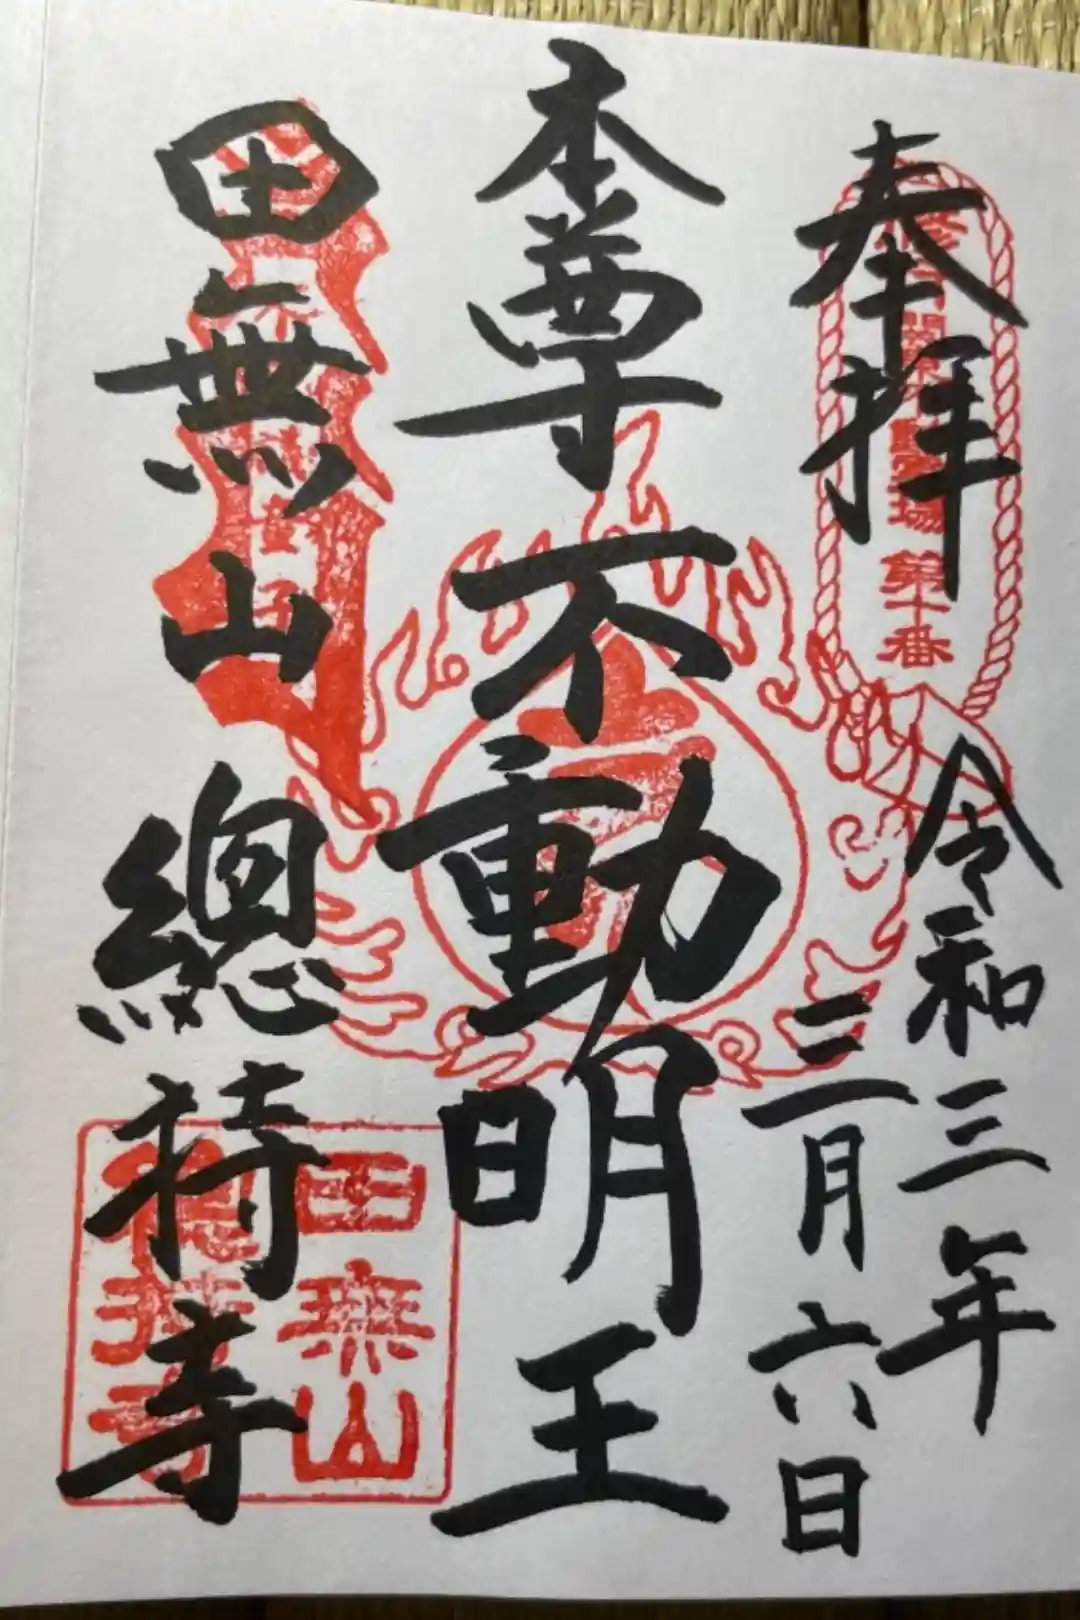 奉拝
令和三年
三月六日
本尊不動明王
田無山總持寺
第十番
田無山
總持寺